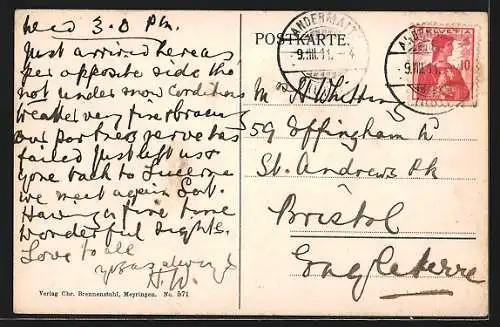 Wed 3.0 Pm.
Just arrived here as
per opposite side tho'
not under snow conditions
weather very fine & breezy
our partners nerve has
failed Just left us &
gone back to Lucerne
we meet again Sat.
Having a fine time
Wonderful sights.
Love to all
yours always
H.W.
Verlag Chr. Brennenstuhl, Meyringen. No. 571
POSTKARTE.
ANDERMATT
9.VIII.11. - 4
ANDERMATT
9.VIII.11.
HELVETIA
10
M H Whitting
59 Effingham
St. Andrews Pk
Bristol
Engleterre